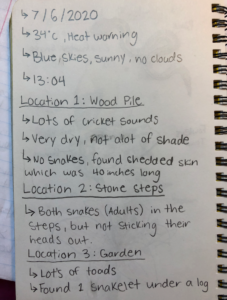 ↳ 7/6/2020
↳ 34°c, Heat warning
↳ Blue, skies, sunny, no clouds
↳ 13:04
Location 1: Wood Pile
↳ Lots of cricket sounds
↳ Very dry, not alot of shade
↳ No snakes, found shedded skin
which was 40 inches long
Location 2: Stone steps
↳ Both snakes (Adults) in the
steps, but not sticking their
heads out.
Location 3: Garden
↳ Lots of toads
↳ Found 1 snakelet under a log